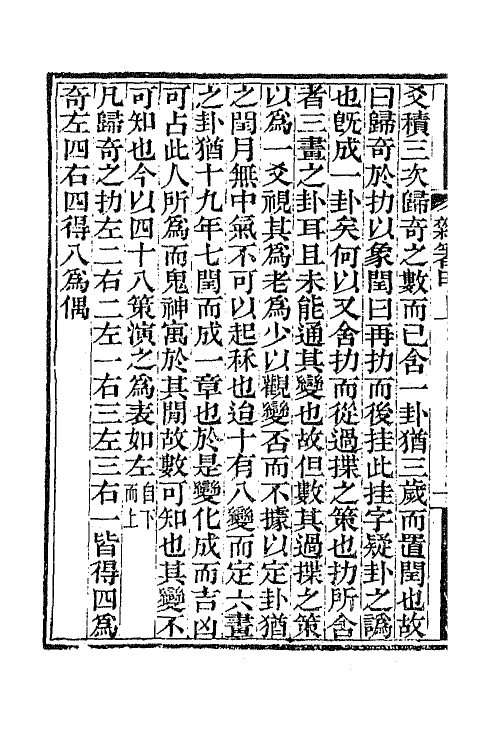 爻積三次歸奇之數而已含一卦猶三歲而置閏也故
曰歸奇於扐以象閏曰再扐而後挂此挂字疑卦之譌
也旣成一卦矣何以又舍扐而從過揲之策也扐所含
者三畫之卦耳且未能通其變也故但數其過揲之策
以爲一爻視其爲老爲少以觀變否而不據以定卦猶
之閏月無中氣不可以起秝也迨十有八變而定六畫
之卦猶十九年七閏而成一章也於是變化成而吉凶
可占此人所爲而鬼神寓於其閒故數可知也其變不
可知也今以四十八策演之爲表如左自下而上
凡歸奇之扐左二右二左一右三左三右一皆得四爲
奇左四右四得八爲偶